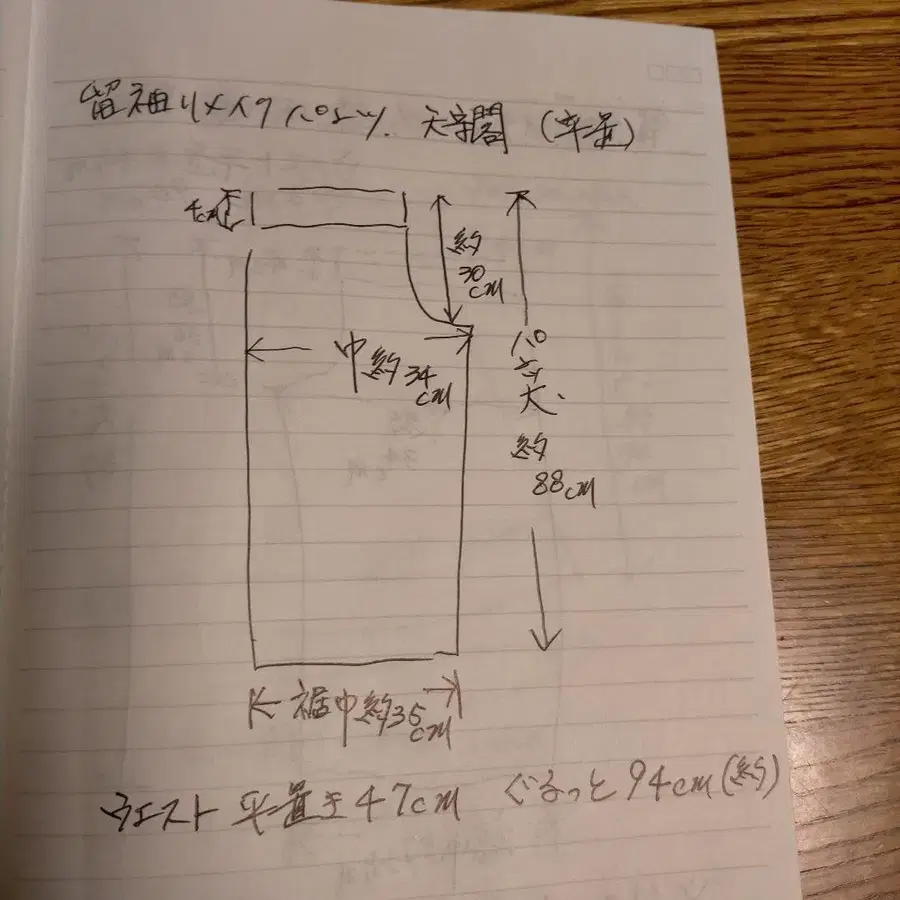 留袖リメイクパンツ. 天守閣 (平置)
4cm
約
30
cm
巾約34
cm
パンツ丈.
約
88cm
裾巾約35
cm
ウエスト 平置き47cm ぐるっと94cm(約)